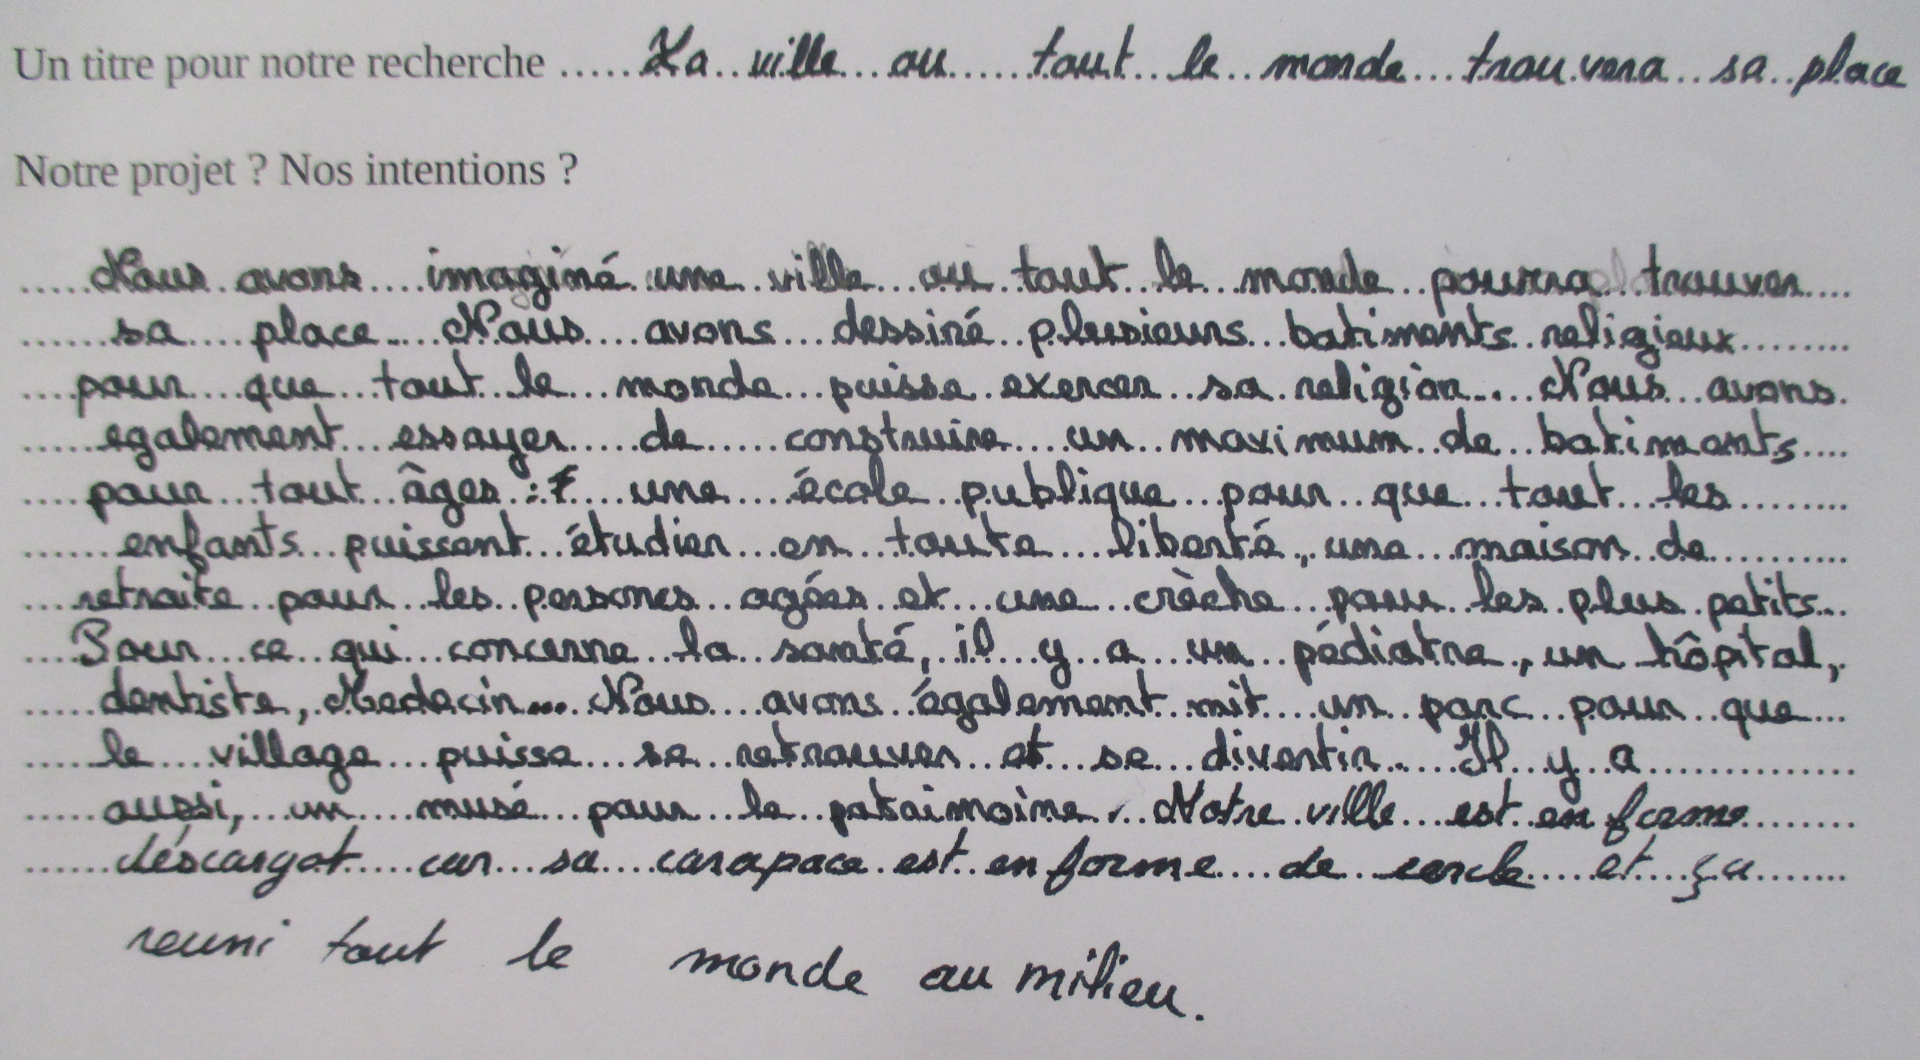 Un titre pour notre recherche ..... La ville ou tout le monde trouvera sa place
Notre projet ? Nos intentions ?
Nous avons imaginé une ville ou tout le monde pourra trouver
sa place. Nous avons dessiné plusieurs batiments religieux
pour que tout le monde puisse exercer sa religion. Nous avons
egalement essayer de construire un maximum de batiments
pour tout âges : une école publique pour que tout les
enfants puissent étudier en toute liberté, une maison de
retraite pour les persones agées et une crèche pour les plus petits.
Pour ce qui concerne la santé, il y a un pédiatre, un hôpital,
dentiste, Medecin... Nous avons également mit un parc pour que
le village puisse se retrouver et se divertir. Il y a
aussi, un musé pour le patrimoine. Notre ville est en forme
d'éscargot car sa carapace est en forme de cercle et ça
reuni tout le monde au milieu.